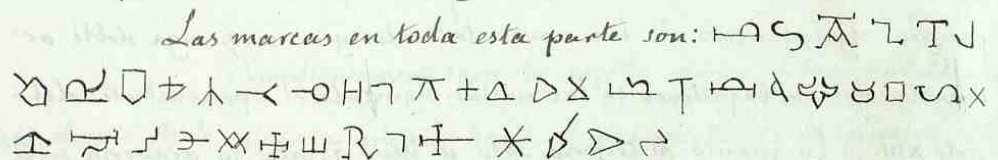 Las marcas en toda esta parte son: